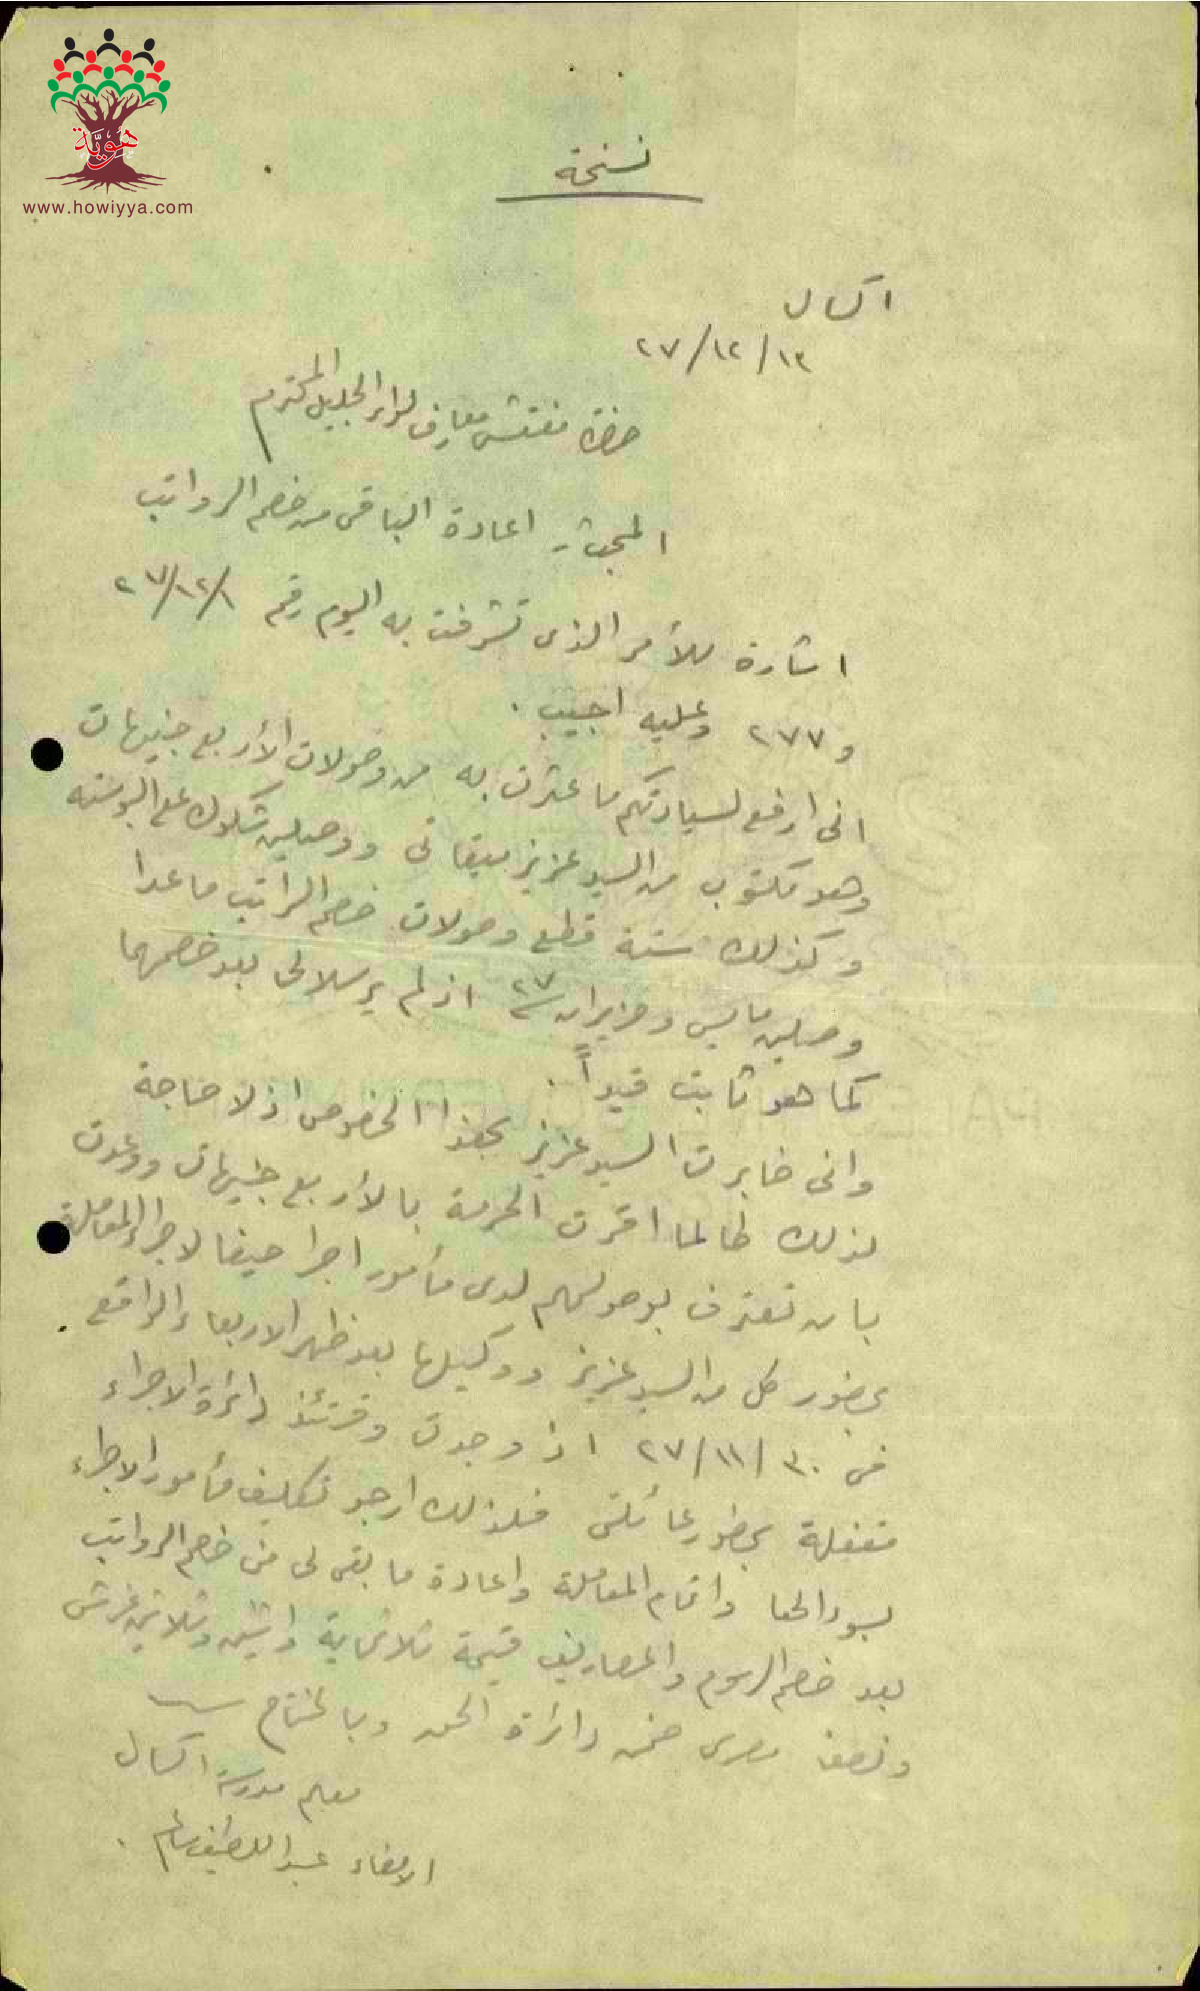 هوية
www.howiyya.com
نسخة
اكسال
٢٧/١٢/١٣
حضرة مفتش معارف لواء الجليل المحترم
المبحث: اعادة الباقي من خصم الرواتب
اشارة للأمر الذي تشرفت به اليوم رقم ٢٧/١٢/١
و ٢٧٧ وعليه اجيب.
اني ارفع لسيادتكم ما عثرت به من وصولات الأربع جنيهات
وهو مكتوب من السيد عزيز ميقاتي ووصلين شكوك على البوسته
وكذلك ستة قطع وصولات خصم الراتب ما عدا
وصلين مايس وحزيران ٢٧ اذ لم يرسلا لي بعد خصمهما
كما هو ثابت قيداً.
واني خابرت السيد عزيز بهذا الخصوص اذ لا حاجة
لذلك طالما اقرت الحرمة بالأربع جنيهات ووعدت
بان تعترف بوصولهم لدى مأمور اجرا حيفا لاجراء المعاملة
بحضور كل من السيد عزيز ووكيلها بعد ظهر الاربعاء الواقع
في ٢٧/١١/٣٠ اذ وجدت وقتئذ دائرة الاجراء
مقفلة بحضور عائلتي فلذلك ارجو تكليف مأمور الاجراء
بسود الحفا واتمام المعاملة واعادة ما بقي لي من خصم الرواتب
بعد خصم الرسوم والمصاريف قيمة ثلاثماية واثنين وثلاثين غرش
ونصف مصري ضمن دائرة الحق وبالختام
معلم مدرسة اكسال
الامضاء عبد اللطيف سالم.